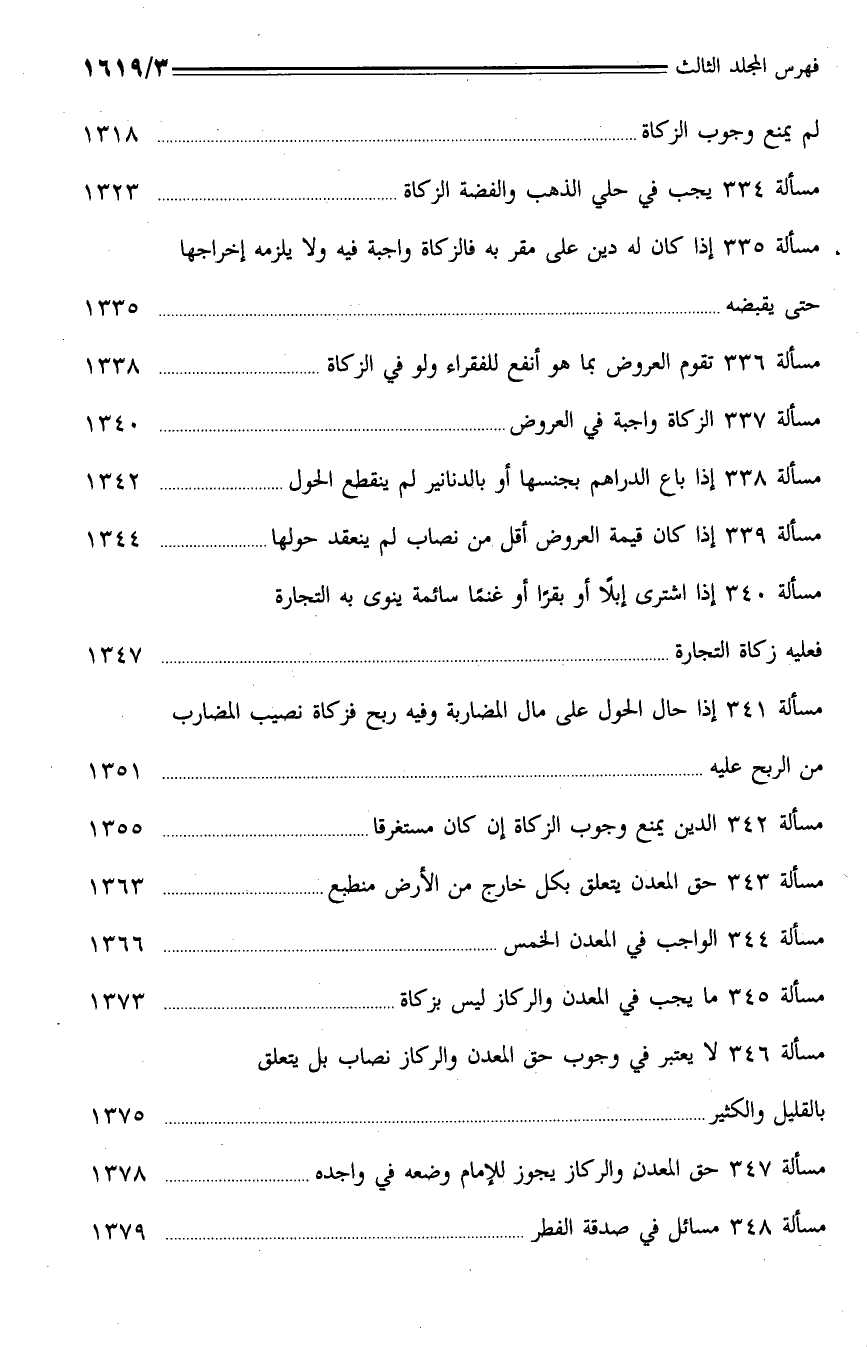 فهرس المجلد الثالث ١٦١٩/٣
لم يمنع وجوب الزكاة ١٣١٨
مسألة ٣٣٤ يجب في حلي الذهب والفضة الزكاة ١٣٢٣
مسألة ٣٣٥ إذا كان له دين على مقر به فالزكاة واجبة فيه ولا يلزمه إخراجها
حتى يقبضه ١٣٣٥
مسألة ٣٣٦ تقوم العروض بما هو أنفع للفقراء ولو في الزكاة ١٣٣٨
مسألة ٣٣٧ الزكاة واجبة في العروض ١٣٤٠
مسألة ٣٣٨ إذا باع الدراهم بجنسها أو بالدنانير لم ينقطع الحول ١٣٤٢
مسألة ٣٣٩ إذا كان قيمة العروض أقل من نصاب لم ينعقد حولها ١٣٤٤
مسألة ٣٤٠ إذا اشترى إبلًا أو بقرًا أو غنمًا سائمة ينوى به التجارة
فعليه زكاة التجارة ١٣٤٧
مسألة ٣٤١ إذا حال الحول على مال المضاربة وفيه ربح فزكاة نصيب المضارب
من الربح عليه ١٣٥١
مسألة ٣٤٢ الدين يمنع وجوب الزكاة إن كان مستغرقا ١٣٥٥
مسألة ٣٤٣ حق المعدن يتعلق بكل خارج من الأرض منطبع ١٣٦٣
مسألة ٣٤٤ الواجب في المعدن الخمس ١٣٦٦
مسألة ٣٤٥ ما يجب في المعدن والركاز ليس بزكاة ١٣٧٣
مسألة ٣٤٦ لا يعتبر في وجوب حق المعدن والركاز نصاب بل يتعلق
بالقليل والكثير ١٣٧٥
مسألة ٣٤٧ حق المعدن والركاز يجوز للإمام وضعه في واجده ١٣٧٨
مسألة ٣٤٨ مسائل في صدقة الفطر ١٣٧٩